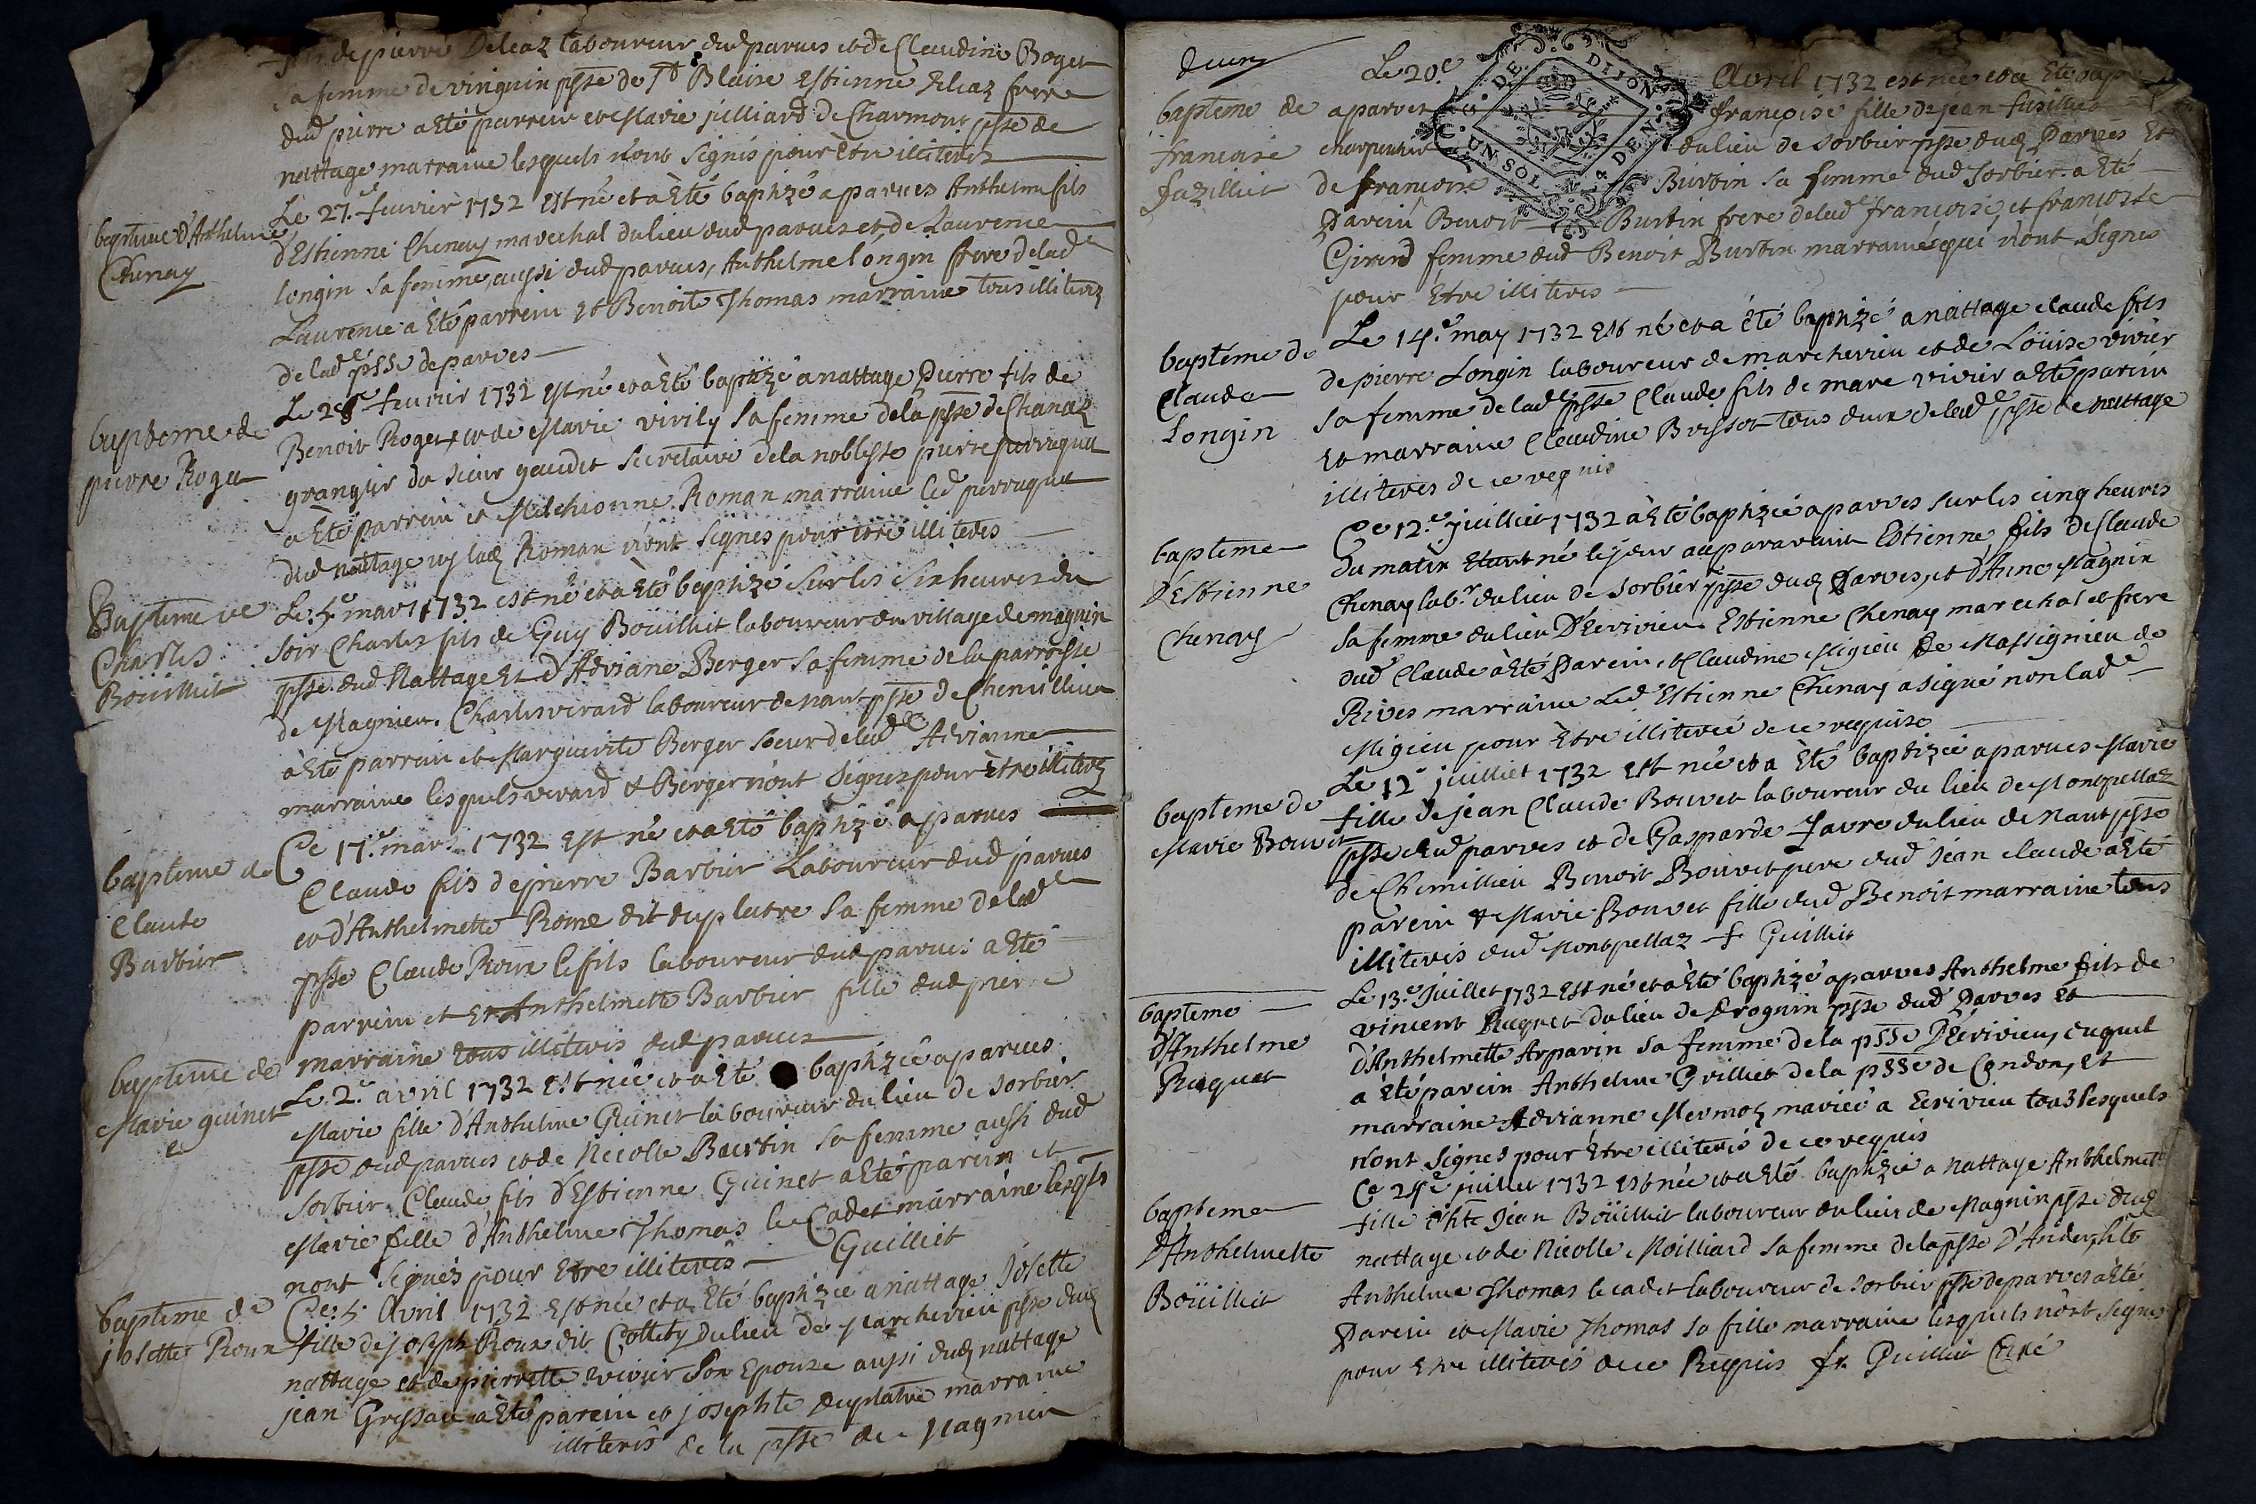 fils de pierre Deleaz laboureur dud parves et de Claudine Boget
sa femme de virignin psse de St Blaise Estienne Eleaz frere
dud pierre a eté parrein et Marie julliard de Charmont psse de
nattage marraine lesquels n'ont signés pour etre illiterés
baptême d'Anthelme
Chenay
Le 27e fevrier 1732 est né et a Eté baptizé a parves Anthelme fils
d'Estienne Chenay marechal du lieu dud parves et de Laurence
longin sa femme, aussi dud parves, Anthelme longin frere de lad
Laurence a Eté parrein et Benoite Thomas marraine tous illiterez
de lad psse de parves
baptême de
pierre Roget
Le 28e fevrier 1732 est né et a Eté baptizé a nattage Pierre fils de
Benoit Roget, et de Marie virily sa femme de la psse de Chanaz
grangier du sieur gaudet secretaire de la noblesse pierre perruquet
a Eté parrein et Melchionne Roman marraine led perruquet
dud nattage ny lad Roman n'ont signés pour etre illiteres
Baptême de
Charles
Boüilliet
Le 4e mars 1732 est né et a Eté baptizé sur les six heures du
soir Charles fils de Guy Boüilliet laboureur du village de magnin
psse dud Nattage Et d'Adriane Berger sa femme de la parroisse
de Magnieu. Charles virard laboureur de nant psse de Chemillieu
a Eté parrein et Marguerite Berger soeur de lad Adrianne
marraine lesquels virard & Berger n'ont signés pour etre illiterez
baptême de
Claude
Barbier
Ce 17e mars 1732 Est né et a Eté baptizé a parves
Claude fils de pierre Barbier Laboureur dud parves
et d'Anthelmette Rome dit duplatre sa femme de lad
psse Claude Rome le fils laboureur dud parves a Eté
parrein et Et Anthelmette Barbier fille dud pierre
marraine tous illiterés dud parves
baptême de
Marie guinet
Le 2e avril 1732 Est née et a Eté baptizée a parves
Marie fille d'Anthelme Guinet laboureur du lieu de sorbier
psse dud parves et de Nicolle Burtin sa femme aussi dud
sorbier. Claude fils d'Estienne Guinet a Eté parein et
Marie fille d'Anthelme Thomas le Cadet marraine lesqls
n'ont signés pour Etre illiterés Guilliet
baptême de
josette Roux
Ce 5 Avril 1732 Est née et a Eté baptizée a nattage Josette
fille de joseph Roux dit Collety du lieu de Marcherieu psse dud
nattage et de pierrette vivier son Epouse aussi dud nattage
jean Grissau a Eté parein et josephte duplatre marraine
illiterés de la psse de Magnieu
deux
baptême de
francoise
fuzilliet
Le 20e Avril 1732 est née et a Eté bap
a parves francoise fille de jean fuzilliet
charpentier du lieu de sorbier psse dud Parves Et
de francoise Burtin sa femme dud sorbier. a Eté
Parein Benoit Burtin frere de lad francoise, et francoise
Girerd femme dud Benoit Burtin marraine qui n'ont signés
pour Etre illiterés
GN. DE DIJON
UN SOL 4 DEN.
baptême de
Claude
Longin
Le 14e may 1732 Est né et a été baptizé a nattage claude fils
de pierre Longin laboureur de marcherieu et de Loüise vivier
sa femme de lad psse Claude fils de marc vivier a Eté parein
et marraine Claudine Brissot tous deux de lad psse de nattage
illiterés de ce requis
baptême
d'Estienne
Chenay
Ce 12e juilliet 1732 a Eté baptizée a parves sur les cinq heures
du matin Etant né le jour auparavant Estienne fils de Claude
Chenay labr du lieu de sorbier psse dud Parves, et d'Anne Magnin
sa femme du lieu D'Ecrivieu Estienne Chenay marechal et frere
dud Claude a Eté Parein, et Claudine Migieu De Massignieu de
Rives marraine Led Estienne Chenay a signé non lad
Migieu pour Etre illiterée de ce requise
baptême de
Marie Bouvet
Le 12 juilliet 1732 Est née et a Eté baptizée a parves Marie
fille de jean Claude Bouvet laboureur du lieu de Montpellaz
psse dud parves et de Gasparde favre du lieu de nant psse
de Chemillieu Benoit Bouvet pere dud Jean claude a Eté
parein & Marie Bouvet fille dud Benoit marraine tous
illiterés dud Montpellaz f Guilliet
baptême
d'Anthelme
Ruquet
Le 13e Juillet 1732 Est né et a Eté baptizé a parves Anthelme fils de
vincent Ruquet du lieu de Frognin psse dud Parves Et
d'Anthelmette Arpavin sa femme de la psse D'Ecrivieu, duquel
a Eté parein Anthelme Grilliet de la psse de Condon, Et
marraine Adrianne Mermoz mariée a Ecrivieu tous lesquels
n'ont signés pour Etre illiterés de ce requis
baptême
d'Anthelmette
Boüilliet
Ce 24e juillet 1732 est née et a Eté baptizée a nattage Anthelmette
fille d'hte Jean Boüilliet laboureur du lieu de Magnin psse dud
nattage et de Nicolle Moilliard sa femme de la psse D'Andert, hte
Anthelme Thomas le cadet laboureur de sorbier psse de parves a Eté
Parein et Marie Thomas sa fille marraine lesquels n'ont signé
pour Etre illiterés de ce Requis fr. Guilliet Curé